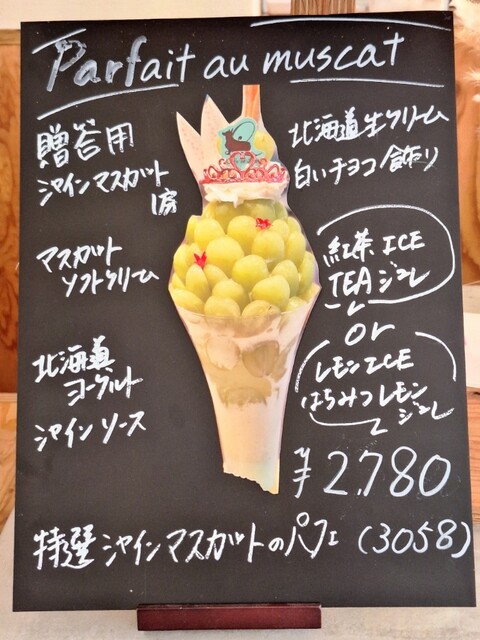 Parfait au muscat
贈答用
シャインマスカット
1房
マスカット
ソフトクリーム
北海道
ヨーグルト
シャインソース
北海道生クリーム
白いチョコ飾り
紅茶ICE
TEAジュレ
or
レモンICE
はちみつレモン
ジュレ
¥2,780
特選シャインマスカットのパフェ(3058)